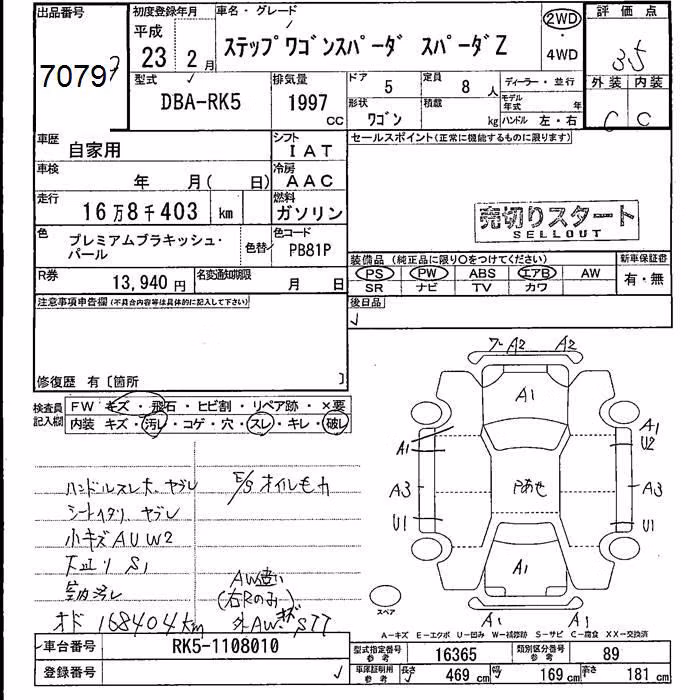 出品番号
70797
初度登録年月
平成
23 年 2 月
車名・グレード
ステップワゴンスパーダ スパーダZ
2WD
・
4WD
評価点
3.5
外装 内装
C C
型式
DBA-RK5
排気量
1997
CC
ドア
5
定員
8 人
ディーラー・並行
形状
ワゴン
積載
kg
モデル年式
年
ハンドル 左・右
車歴
自家用
シフト
IAT
車検
年 月( 日)
冷房
AAC
走行
16万8千403 km
燃料
ガソリン
色
プレミアムブラキッシュ・
パール
色替
色コード
PB81P
R券
13,940 円
名変通知期限
月 日
セールスポイント(正常に機能するものに限ります)
売切りスタート
SELLOUT
装備品 (純正品に限り○をつけてください)
新車保証書
PS PW ABS エアB AW
有・無
SR ナビ TV カワ
後日品
注意事項申告欄(不具合内容等は具体的に記入して下さい)
修復歴 有〔箇所 〕
検査員
記入欄
FW キズ・飛石・ヒビ割・リペア跡・×要
内装 キズ・汚レ・コゲ・穴・スレ・キレ・破レ
ハンドルスレ大、ヤブレ
E/Sオイルモレ
シートヘタリ、ヤブレ
小キズ AUW2
下廻り S1
室内汚レ
AW違い
(右Rのみ)
オド 168404km
外AWキズ STT
ワレ A2 A2
A1
A1
A1
U2
A3
Pあせ
A3
U1
U1
A1
スペア
A1 A1
A-キズ E-エクボ U-凹み W-補修跡 S-サビ C-腐食 XX-交換済
車台番号
RK5-1108010
登録番号
型式指定番号
参考
16365
類別区分番号
参考
89
車庫証明用
参考
長さ
469 cm
幅
169 cm
高さ
181 cm